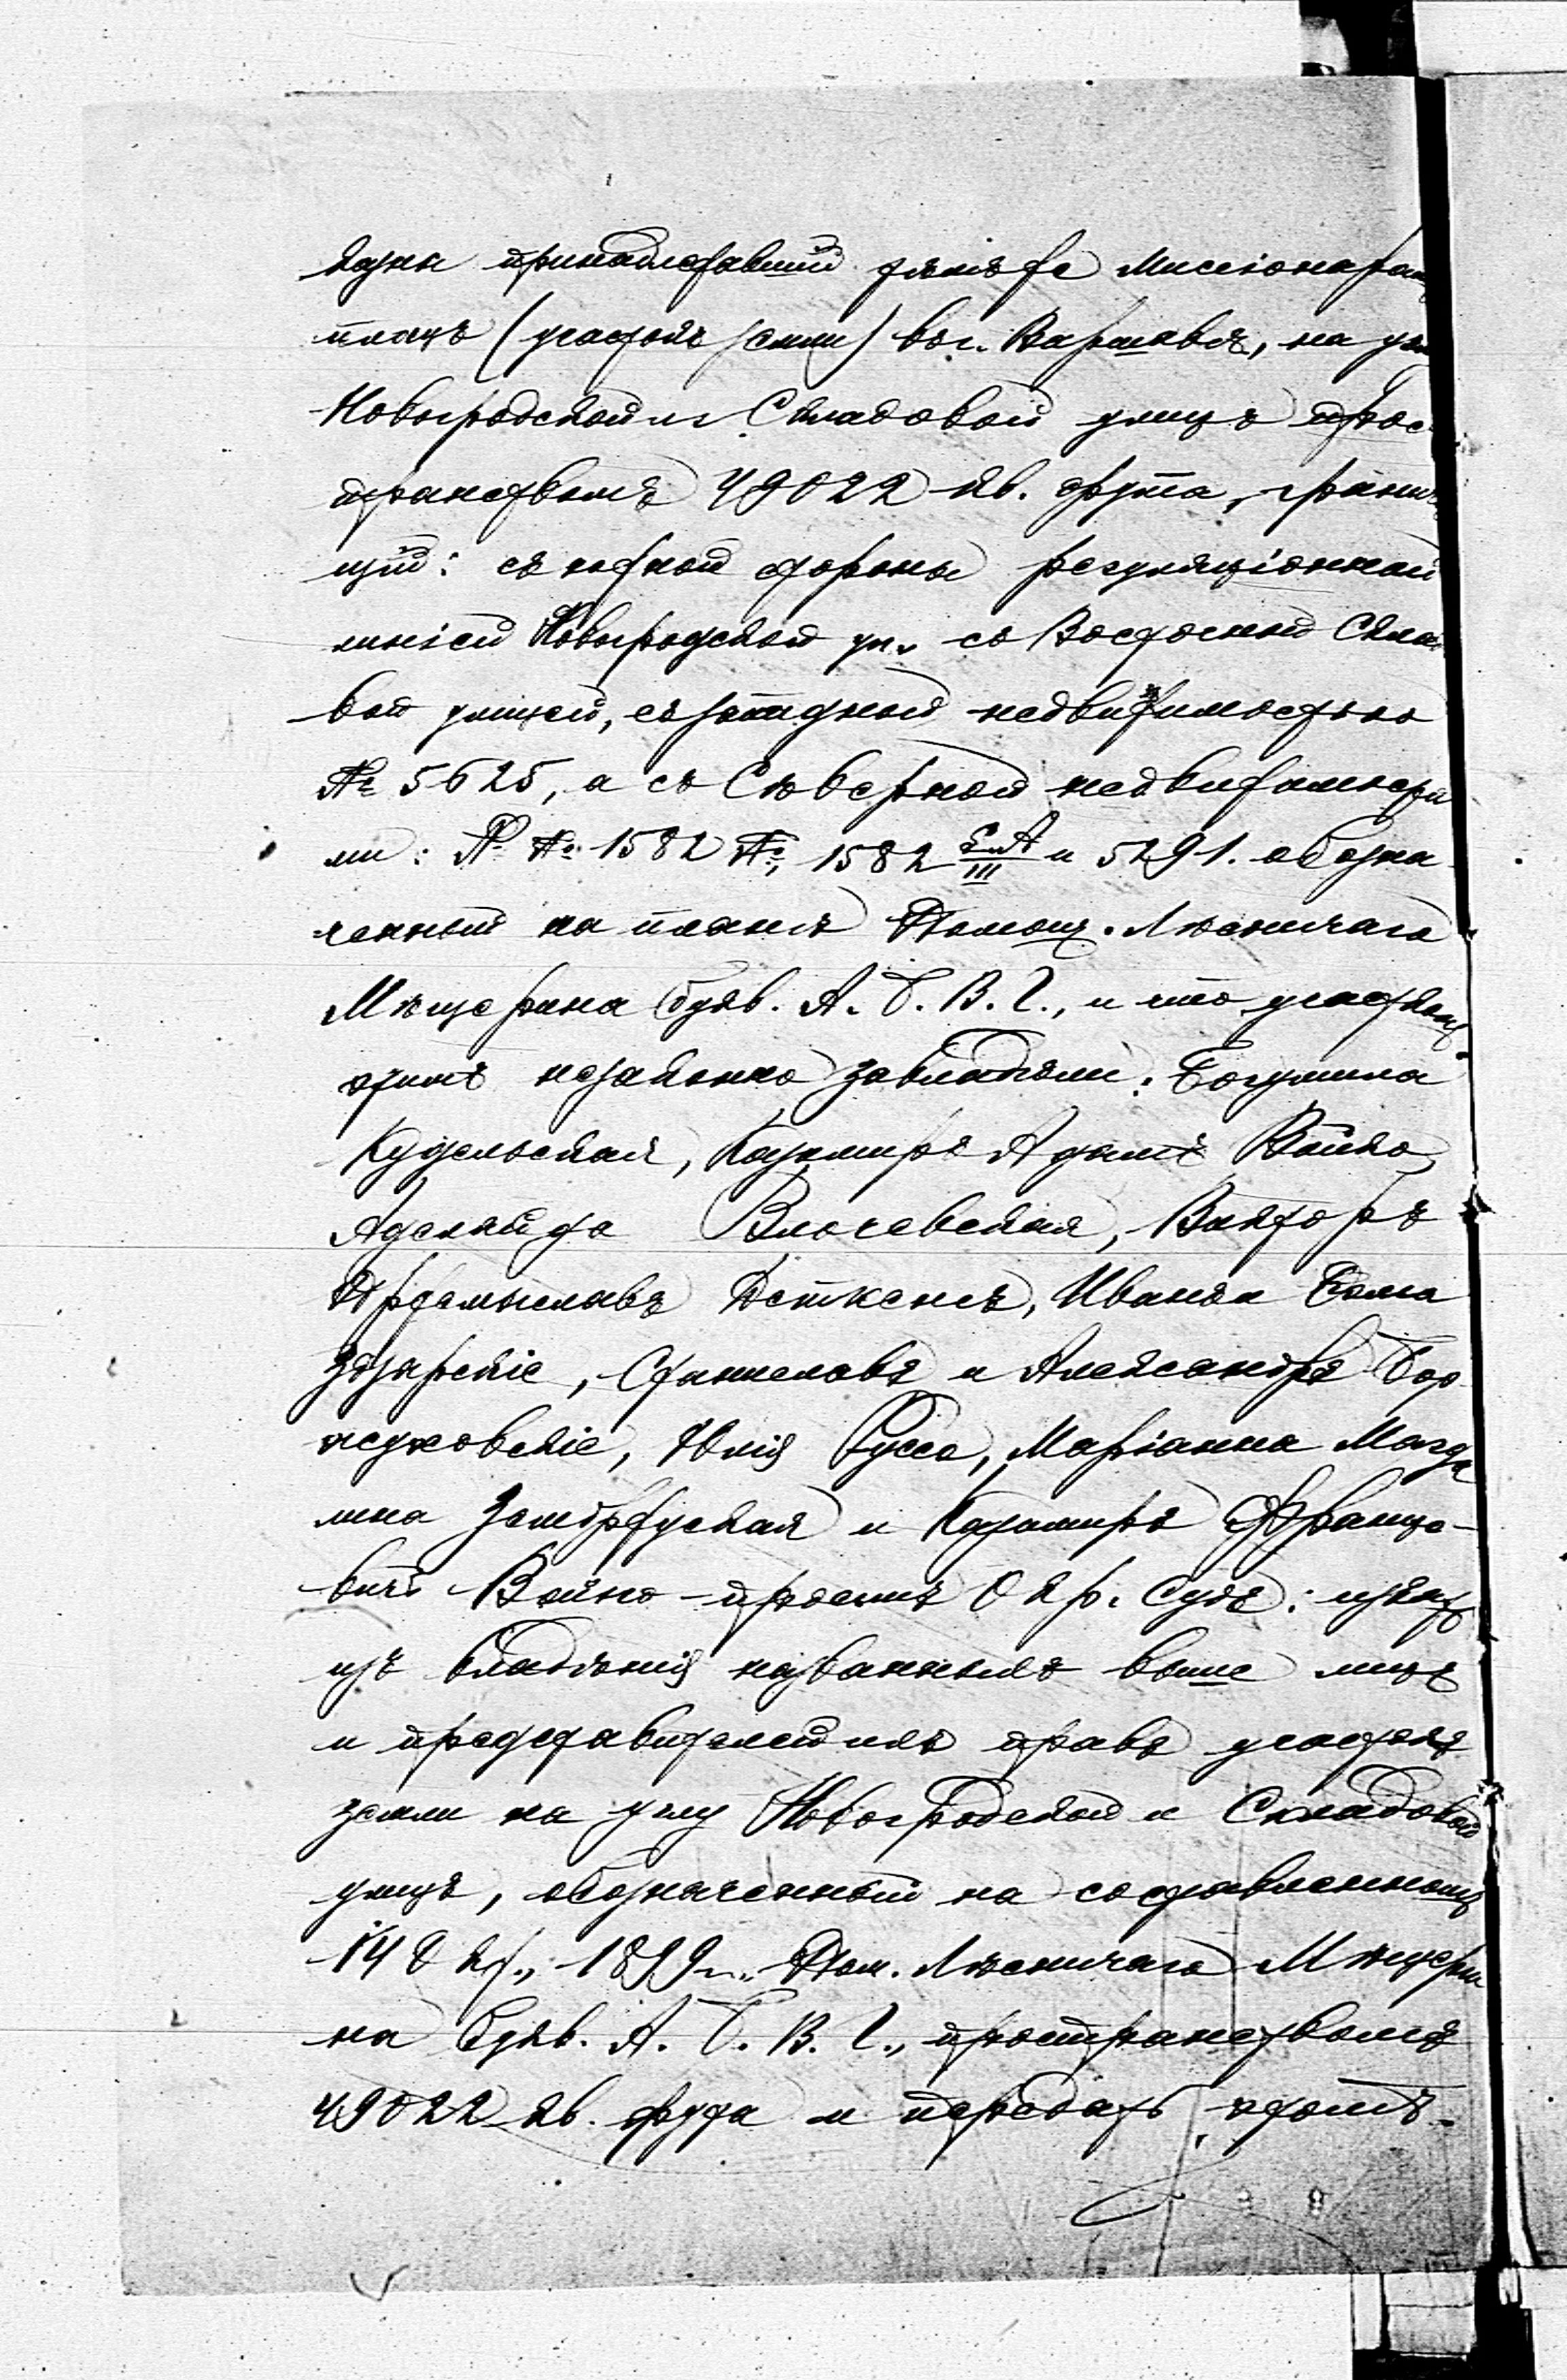 казнѣ принадлежавшій тѣмъ же Миссіонерамъ
плацъ (участокъ земли) въ г. Варшавѣ, на углу
Новогродской и Складовой улицъ прос-
транствомъ 49022 кв. фута, гранича-
щій: съ южной стороны регуляціонной
линіей Новогродской ул. со Восточной Складо
вой улицей, съ западной недвижимостью
№ 5625, а съ Сѣверной недвижимостя
ми: № № 1582 1582 и 5291. обозна
ченный на планѣ Помощ. Лѣсничаго
Мѣщерина букв. А. Б. В. Г., и что участкомъ
этимъ незаконно завладѣли: Богумила
Кудельская, Казимиръ Адамъ Война
Аделаида Влочевская, Викторъ
Пржемыславъ Иванъ и
Станиславъ и Александръ Бор
жуховскіе, Юлія Руссе, Маріанна Магда
лена и Казимиръ Францо-
вичъ Война – проситъ Окр. Судъ: изъять
изъ владѣнія названныхъ выше лицъ
и представителей ихъ правъ участокъ
земли на углу Новогродской и Складовой
улицъ, обозначенный на составленномъ
14 Окт., 1899 г., Пом. Лѣсничаго Мѣщери
на букв. А. Б. В. Г., пространствомъ
49022 кв. фута и передать